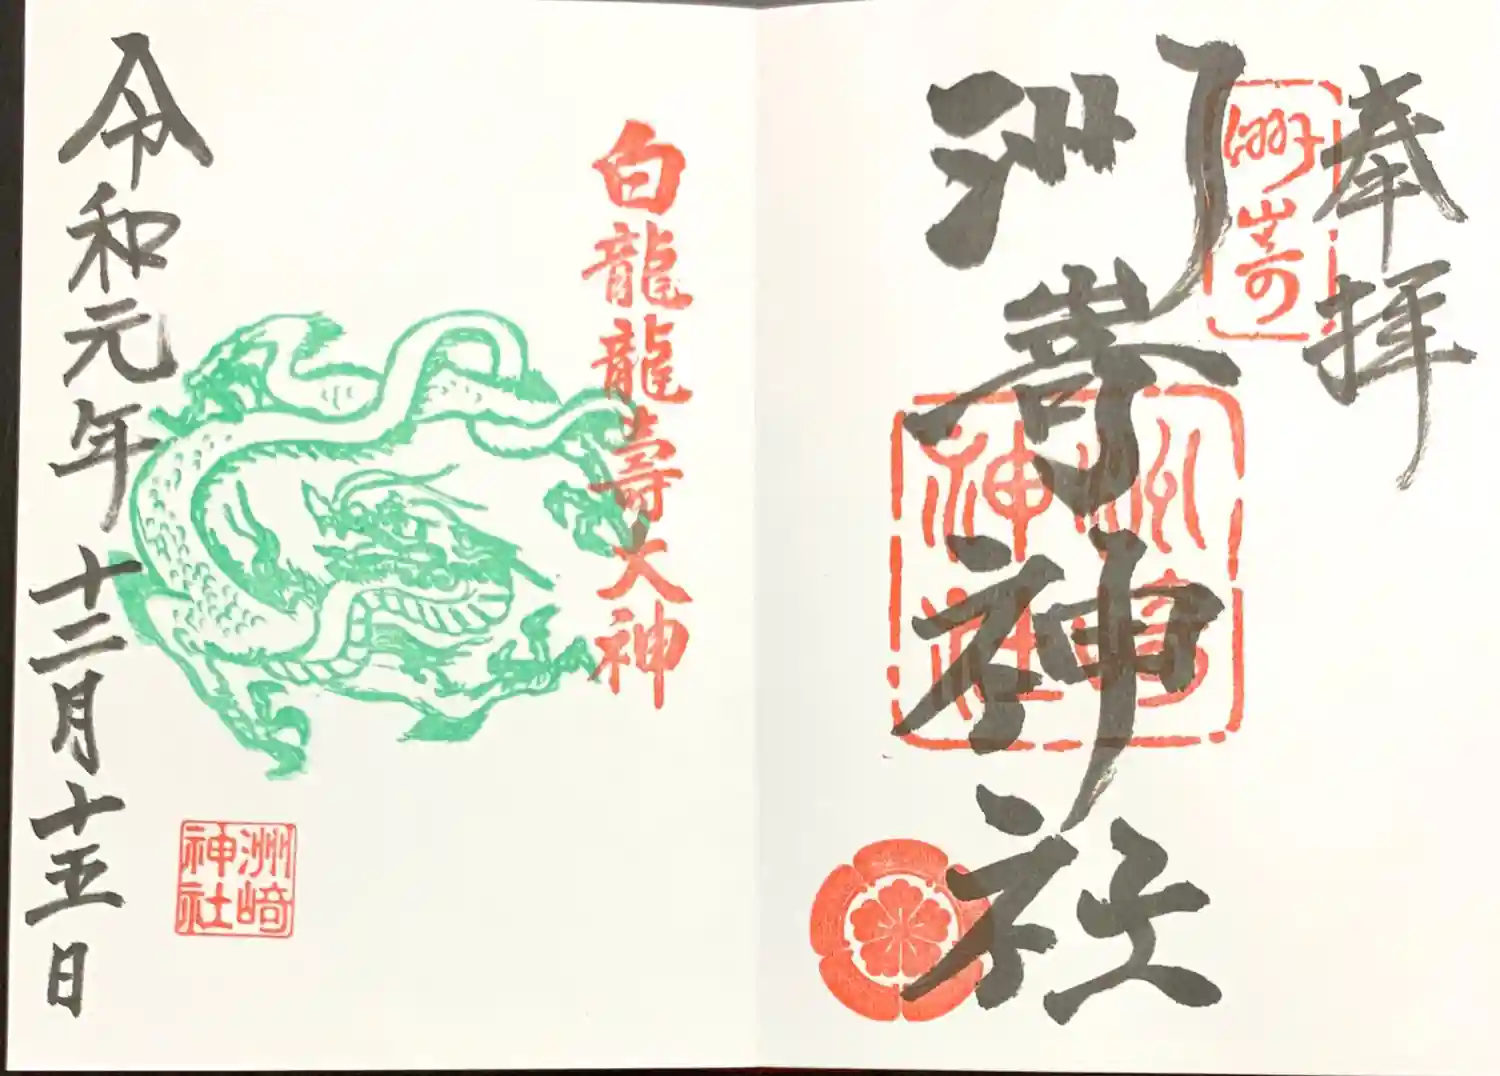 奉拝
洲嵜
洲嵜神社
洲嵜神社
白龍龍壽大神
洲崎神社
令和元年十二月十五日